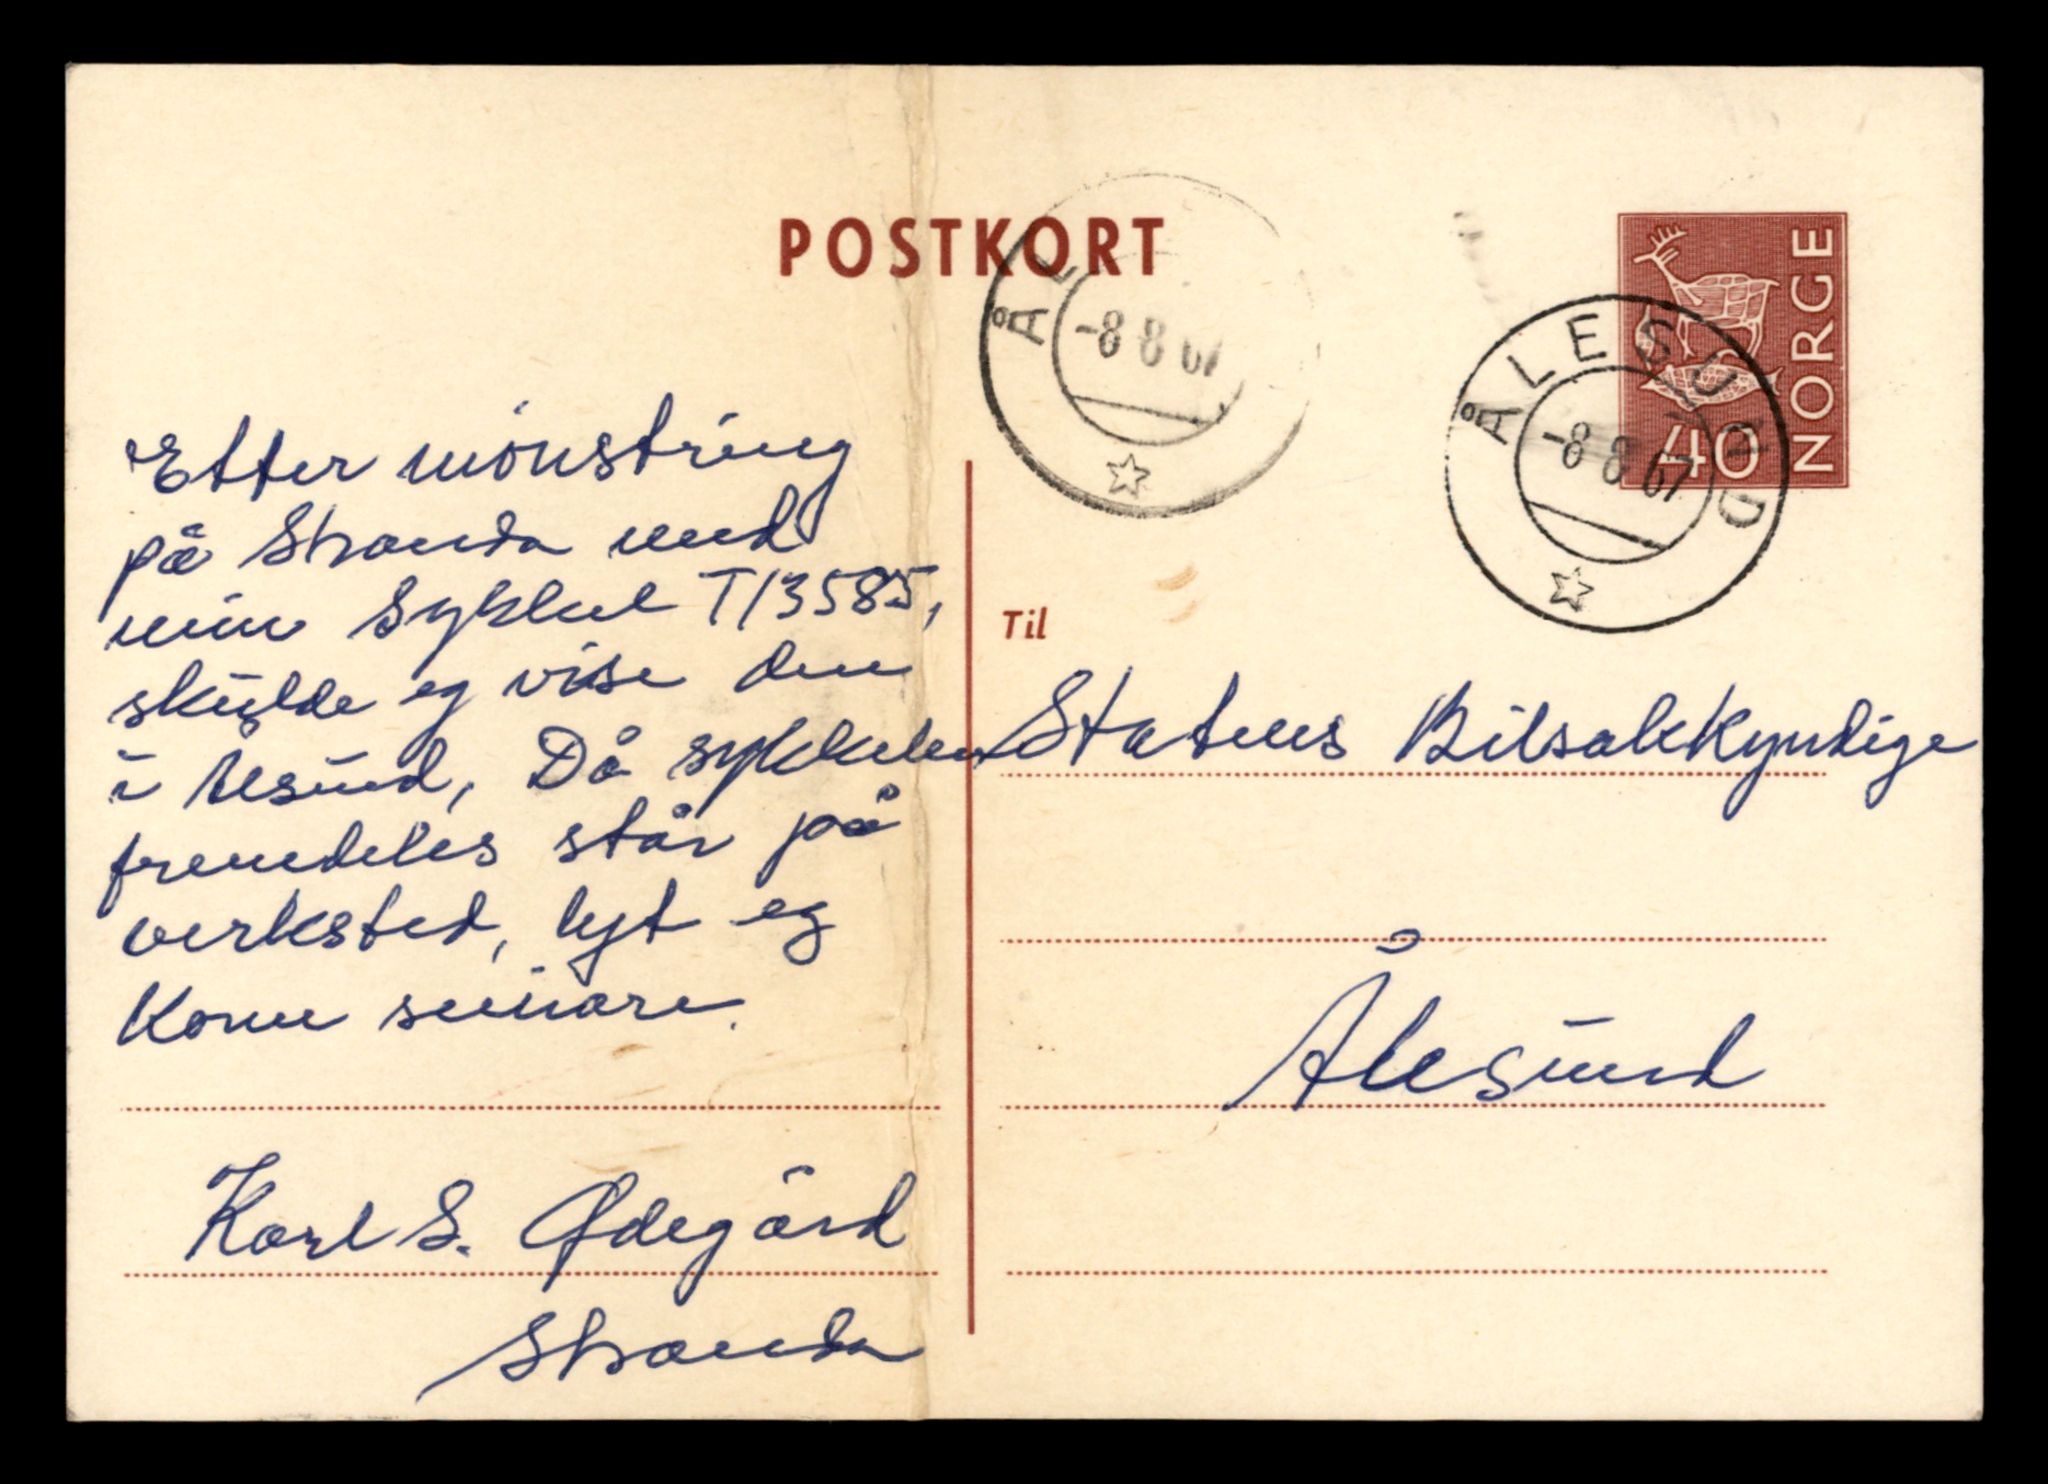 POSTKORT
ÅL
-8 8 67
NORGE
40
ÅLESUND
-8 8 67
Etter mönstring
på Stranda med
min Sykkel T13585,
skulde eg vise den
i Ålesund, Då sykkelen
fremdeles står på
verksted, lyt eg
Kome seinare.
Karl S. Ødegård
Stranda
Til
Statens Bilsakkyndige
Ålesund